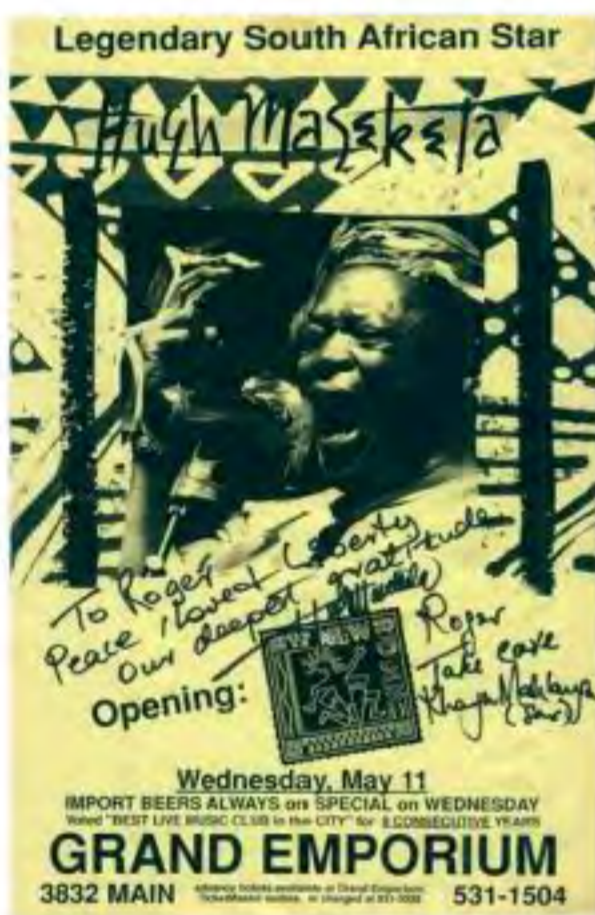 Legendary South African Star
Hugh Masekela
To Roger
Peace, Love & Liberty
Our deepest gratitude
Roger
Take care
Opening:
Wednesday, May 11
IMPORT BEERS ALWAYS on SPECIAL on WEDNESDAY
Voted "BEST LIVE MUSIC CLUB in the CITY" for 8 CONSECUTIVE YEARS
GRAND EMPORIUM
3832 MAIN
advance tickets available at Grand Emporium
531-1504